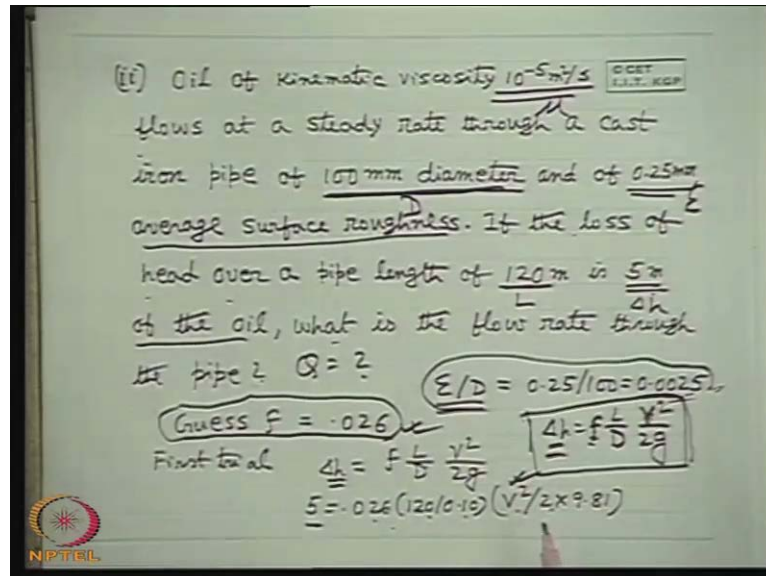 (ii) Oil of Kinematic viscosity 10⁻⁵ m²/s
© CET
I.I.T. KGP
flows at a steady rate through a cast
iron pipe of 100 mm diameter and of 0.25mm
D ε
average surface roughness. If the loss of
head over a pipe length of 120 m is 5 m
L Δh
of the oil, what is the flow rate through
the pipe? Q = ?
ε/D = 0.25/100 = 0.0025
Guess f = .026
Δh = f L/D V²/2g
First trial Δh = f L/D V²/2g
5 = .026 (120/0.10) (V²/2×9.81)
NPTEL